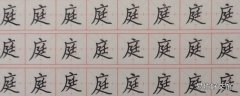 庭庭庭庭庭庭庭庭
庭庭庭庭庭庭庭庭
庭庭庭庭庭庭庭庭